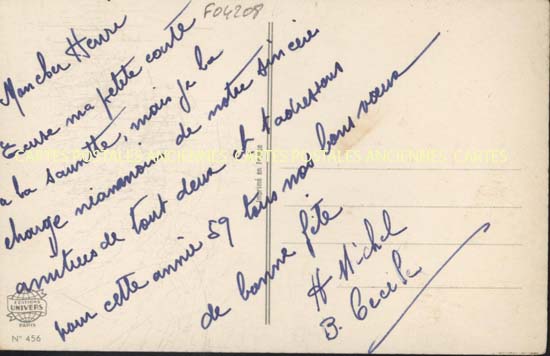 F04208
Mon cher Henri
Excuse ma petite carte
à la sauvette, mais je la
charge néanmoins de notre sincère
amitiées de tout deux et t'adressons
pour cette année 59 tous nos bons vœux
de bonne fête
H Michel
B. Cecile
CARTES POSTALES ANCIENNES CARTES POSTALES ANCIENNES CARTES
Imprimé en France
EDITIONS
UNIVERS
PARIS
N° 456